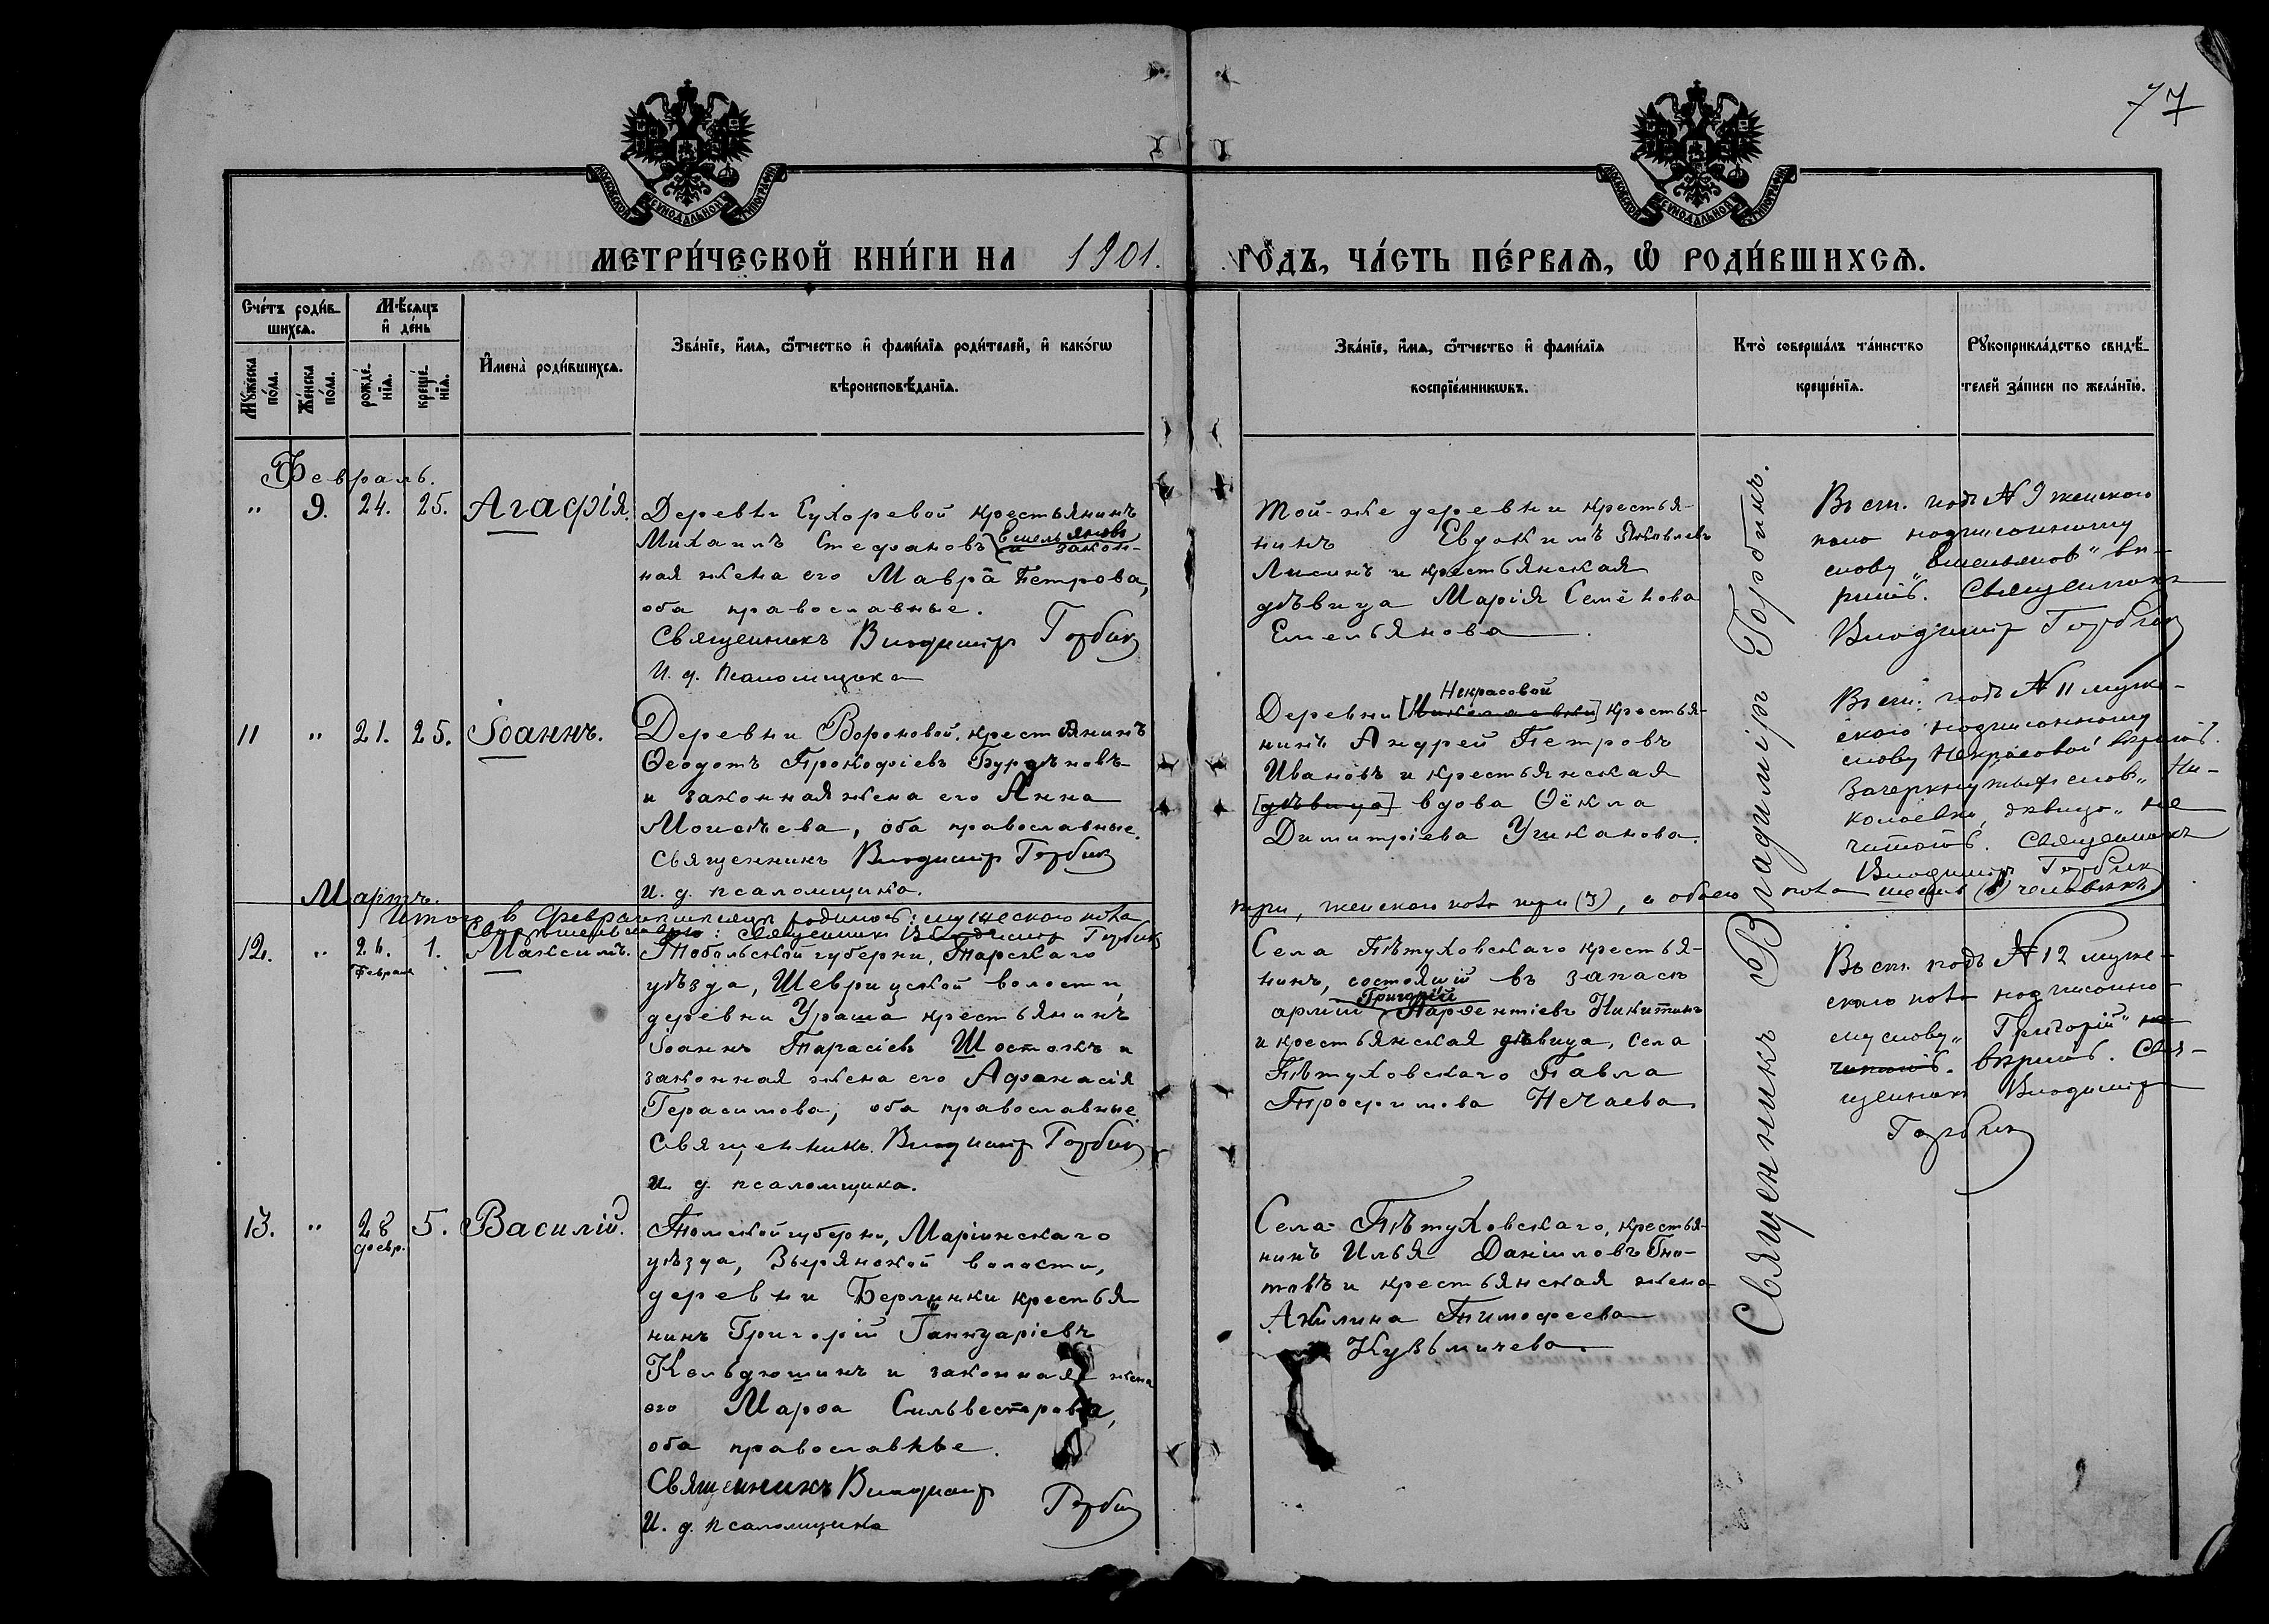 77
МОСКОВСКОЙ СѴНОДАЛЬНОЙ ТИПОГРАФІИ
МОСКОВСКОЙ СѴНОДАЛЬНОЙ ТИПОГРАФІИ
МЕТРИ́ЧЕСКОЙ КНИ́ГИ НА 1901. ГО́ДЪ, ЧА́СТЬ ПЕ́РВАѦ, Ѡ РОДИ́ВШИХСѦ.
Сче́тъ роди́в-
шихсѧ.
Мꙋ́жеска
по́ла.
Же́нска
по́ла.
Мѣ́сѧцъ
и҆ де́нь
рожде́-
нїѧ.
креще́-
нїѧ.
И҆мена̀ роди́вшихсѧ.
Зва́нїе, и҆́мѧ, ѻ҆́тчество и҆ фами́лїѧ роди́телей, и҆ како́гѡ
вѣроисповѣ́данїѧ.
Зва́нїе, и҆́мѧ, ѻ҆́тчество и҆ фами́лїѧ
воспрїе́мникѡвъ.
Кто̀ соверша́лъ та́инство
креще́нїѧ.
Рꙋкоприкла́дство свидѣ́-
телей за́писи по жела́нїю.
Февраль.
" 9. 24. 25. Агафія.
Деревни Сухоревой крестьянинъ
Михаилъ Стефановъ Емельяновъ и закон-
ная жена его Мавра Петрова,
оба православные.
Священникъ Владимір Горбин
И. д. псаломщика
Той-же деревни крестья-
нинъ Евдокимъ Яковлевъ
Лисинъ и крестьянская
дѣвица Марія Семёнова
Емельянова.
Въ ст. подъ № 9 женского
пола надписанному
слову „Емельянов" вѣ-
рить. Священникъ
Владимір Горбин
11 " 21. 25. Іоаннъ.
Деревни Вороновой, крестьянинъ
Ѳеодотъ Прокофіевъ
и законная жена его Анна
Моисѣева, оба православные.
Священникъ Владимір Горбин
и. д. псаломщика.
Деревни [Николаевки] Некрасовой крестья-
нинъ Андрей Петровъ
Ивановъ и крестьянская
[дѣвица] вдова Ѳёкла
Димитріева Ушканова.
Въ ст. подъ № 11 муже-
ского надписанному
слову Некрасовой вѣрить.
Зачеркнутых слов „Ни-
колаевки, дѣвица" не
читать. Священникъ
Владимір Горбин
Мартъ.
Итого в Феврале мѣсяцѣ родилось: мужескаго пола три, женскаго пола три (3), а обоего пола шесть (6) человѣкъ
Священникъ Владимір Горбин
12. " 26. Февраля 1. Максимъ.
Тобольской губерніи, Тарскаго
уѣзда, Шеврицской волости,
деревни Ураша крестьянинъ
Іоаннъ Тарасіевъ Шостакъ и
законная жена его Афанасія
Герасимова, оба православные.
Священникъ Владимір Горбин
и. д. псаломщика.
Села Пѣтуховскаго крестья-
нинъ, состоящій въ запасѣ
арміи Григорій Парѳентіевъ Никитинъ
и крестьянская дѣвица, села
Пѣтуховскаго Павла
Трофимова Нечаева
Въ ст. подъ № 12 муже-
ского пола надписанно-
му слову „Григорій" не
читать. вѣрить. Свя-
щенникъ Владимір
Горбин
13. " 28 февр. 5. Василій.
Томской губерніи, Маріинскаго
уѣзда, Зырянской волости,
деревни Берлинки крестья-
нинъ Григорій Іаннуаріевъ
Кельдюшинъ и законная жена
его Марѳа Сильвестрова,
оба православные.
Священникъ Владимір Горбин
И. д. псаломщика
Села Пѣтуховскаго, крестья-
нинъ Илья Даніиловъ Гна-
товъ и крестьянская жена
Акилина Тимофеева
Кузьмичева.
Священникъ Владиміръ Горбинъ.